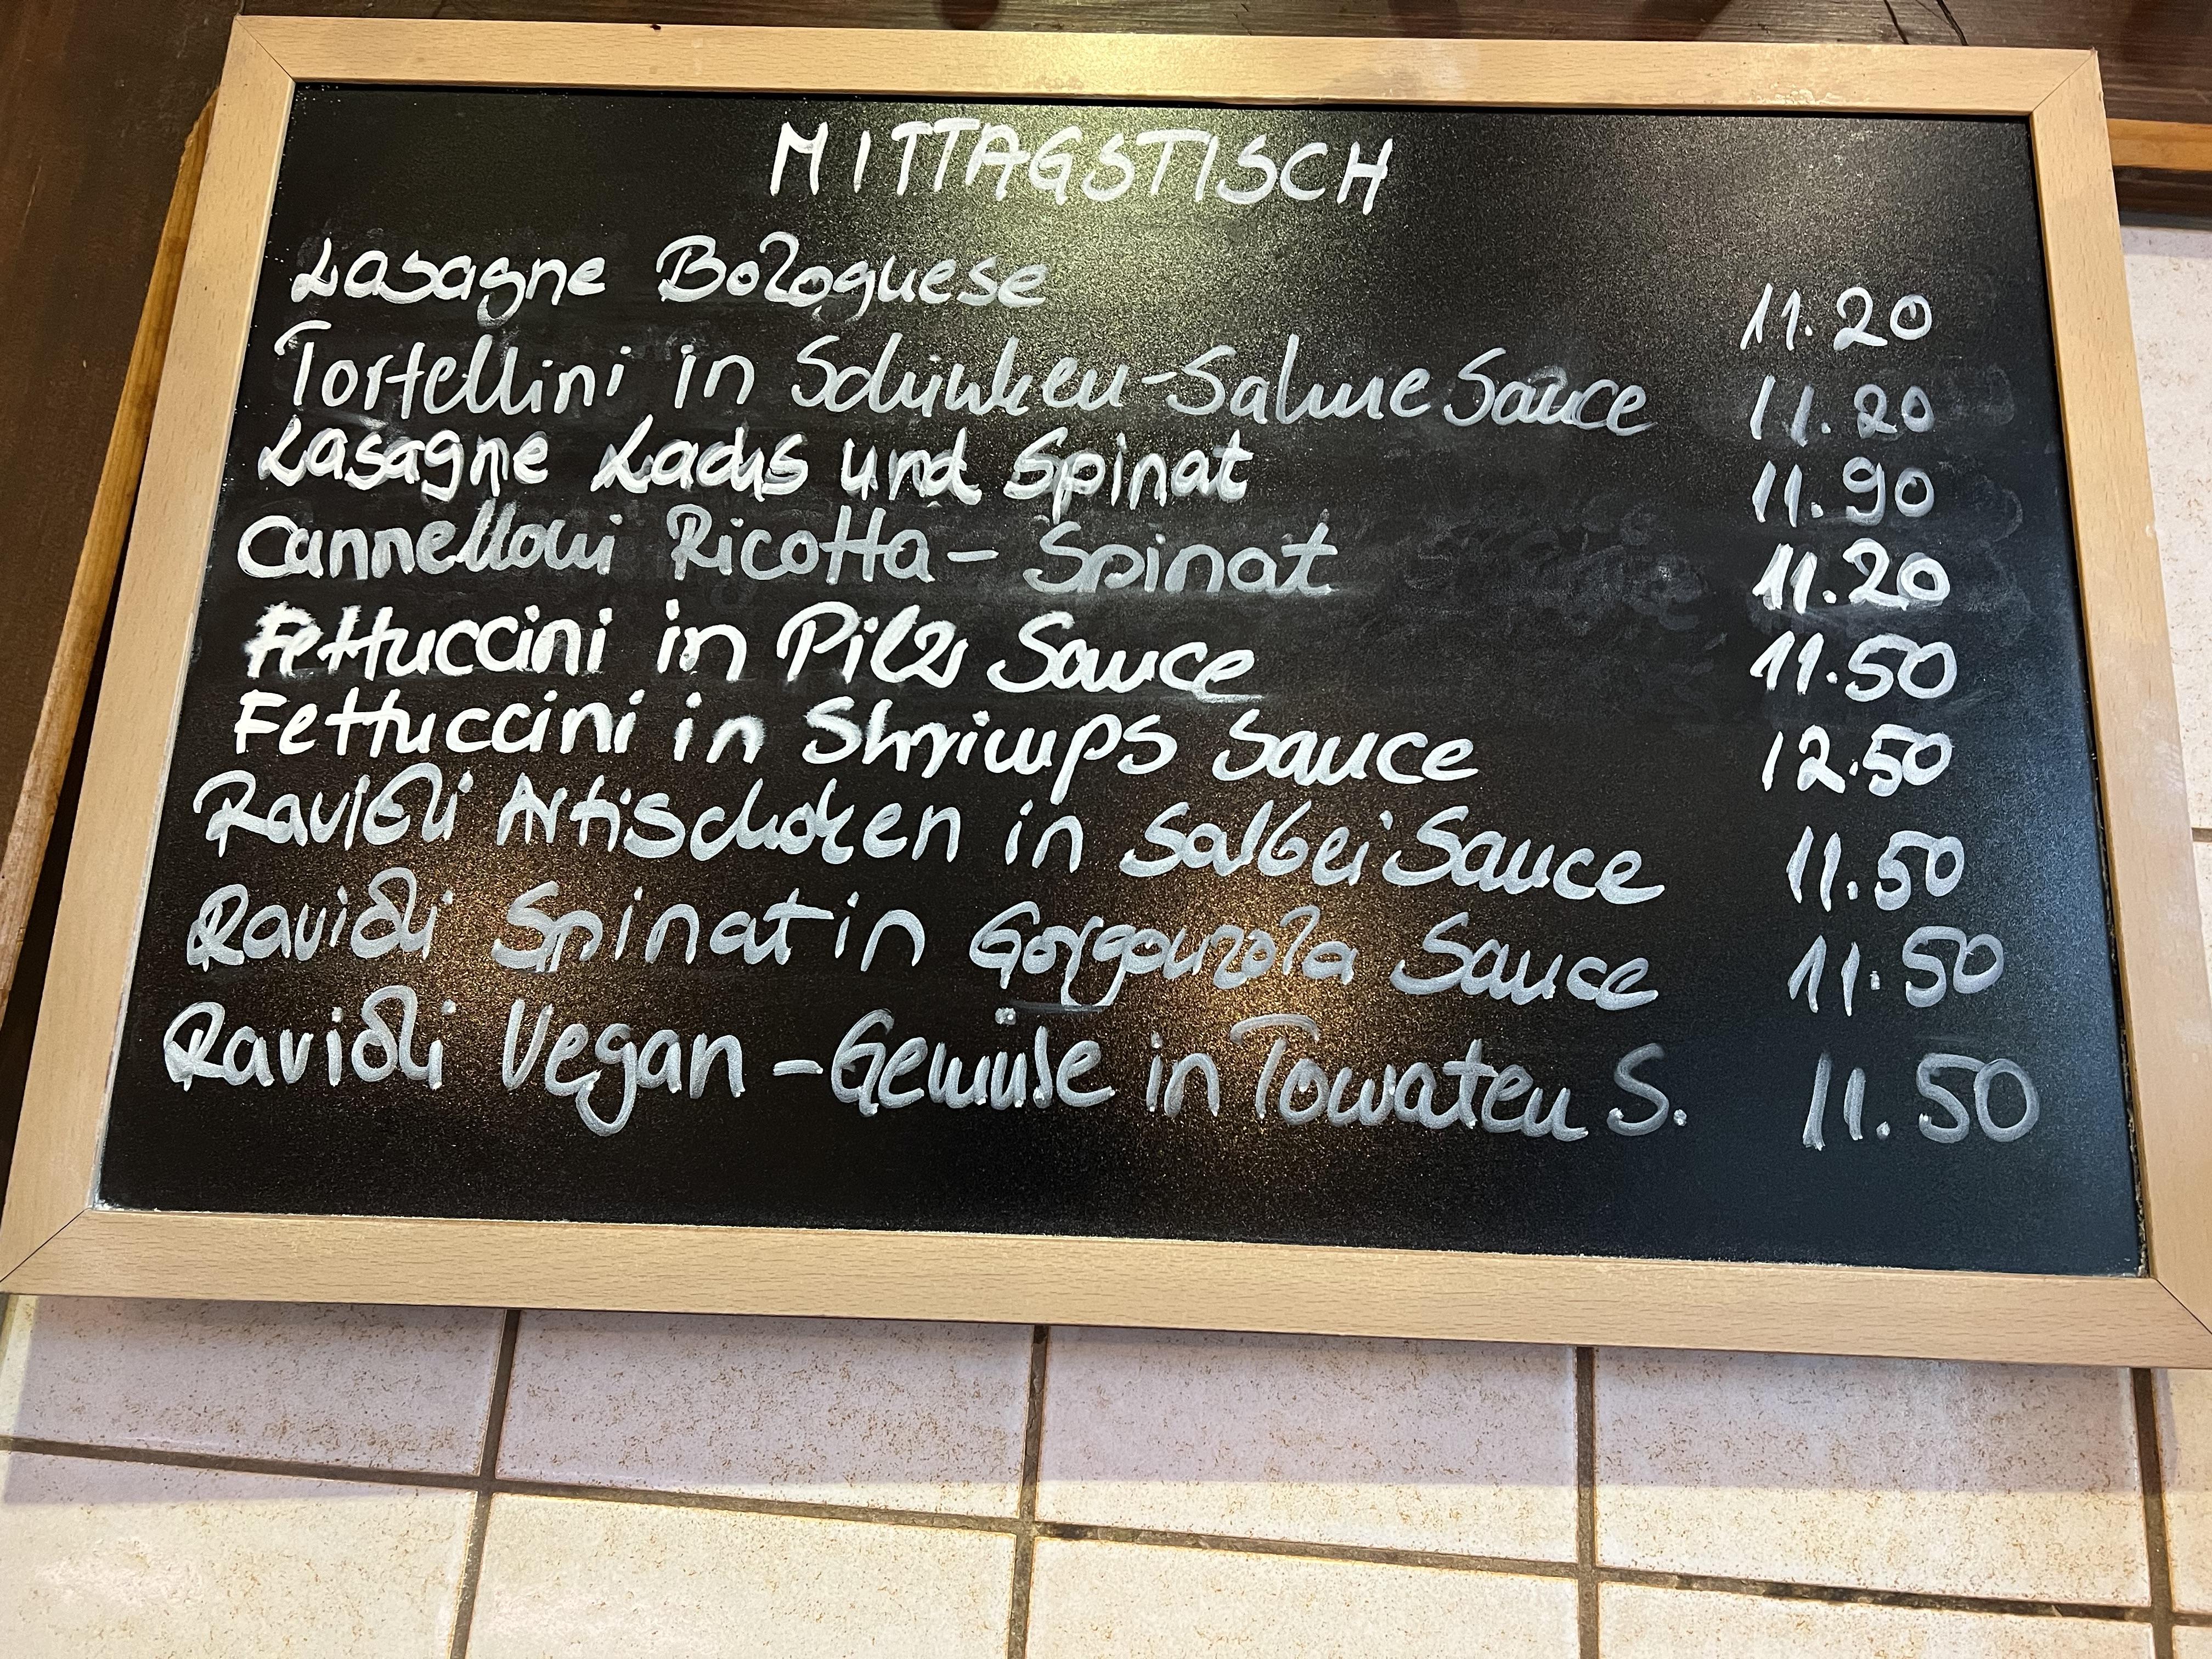 MITTAGSTISCH
Lasagne Bolognese 11.20
Tortellini in Schinken-Sahne Sauce 11.20
Lasagne Lachs und Spinat 11.90
Cannelloni Ricotta - Spinat 11.20
Fettuccini in Pilz Sauce 11.50
Fettuccini in Shrimps Sauce 12.50
Ravioli Artischoken in Salbei Sauce 11.50
Ravioli Spinat in Gorgonzola Sauce 11.50
Ravioli Vegan - Gemüse in Tomaten S. 11.50